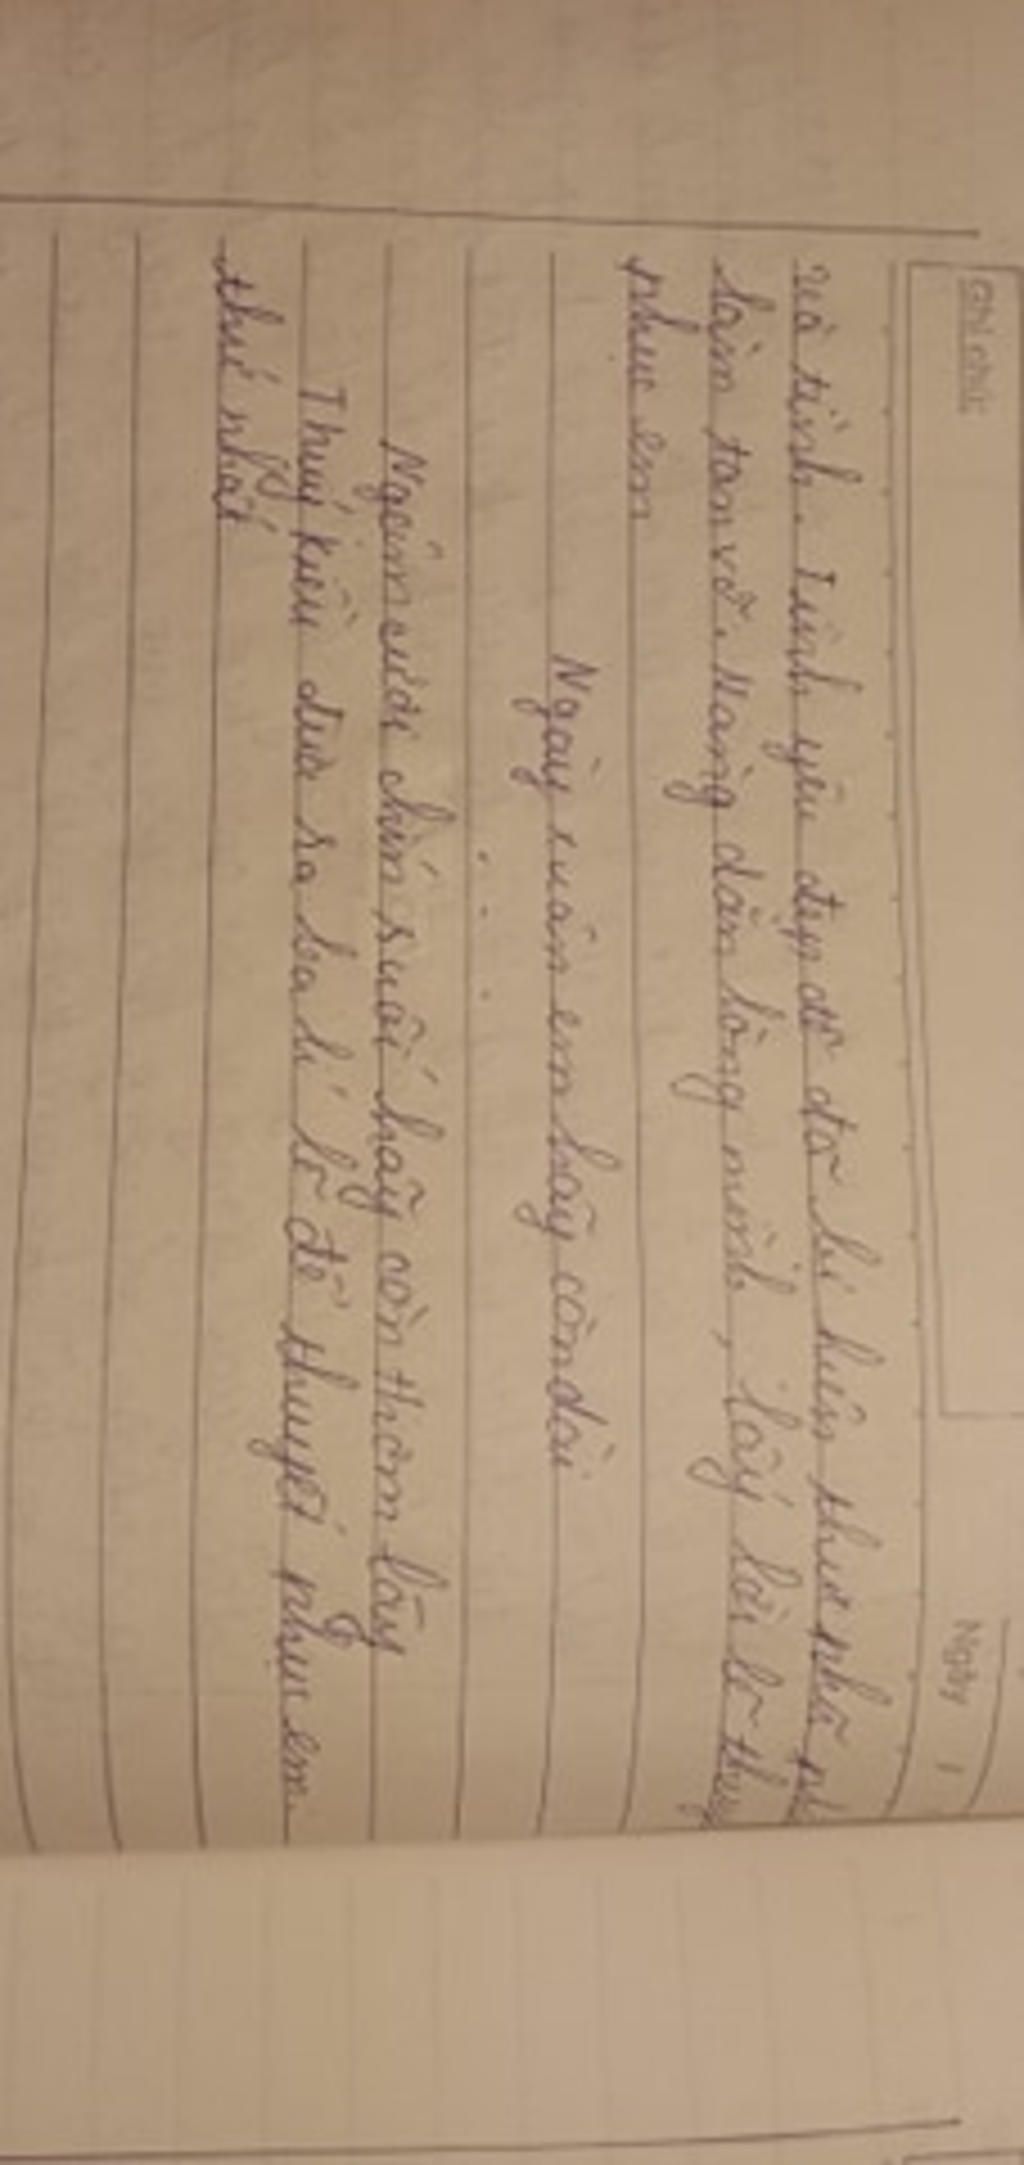 Ghi chú:
Ngày /
và tình. Tình yêu đẹp đẽ đó bị hiện thực nhà
làm tan vỡ. Nàng dằn lòng mình, lấy lời lẽ
phục em
Ngày xuân em hãy còn dài
. . . .
Ngậm cười chín suối hãy còn thơm lây
Thuý Kiều đưa ra ba lí lẽ để thuyết phục em.
thứ nhất